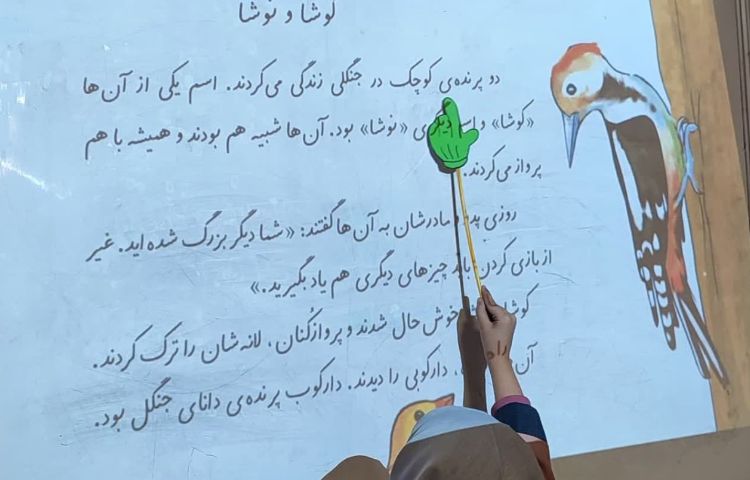 کوشا و نوشا
دو پرنده‌ی کوچک در جنگلی زندگی می‌کردند. اسم یکی از آن‌ها
«کوشا» و اسم دیگری «نوشا» بود. آن‌ها شبیه هم بودند و همیشه با هم
پرواز می‌کردند.
روزی پدر و مادرشان به آن‌ها گفتند: «شما دیگر بزرگ شده‌اید. غیر
از بازی کردن باید چیزهای دیگری هم یاد بگیرید.»
کوشا خوش حال شدند و پروازکنان، لانه‌شان را ترک کردند.
دارکوبی را دیدند، دارکوب پرنده‌ی دانای جنگل بود.